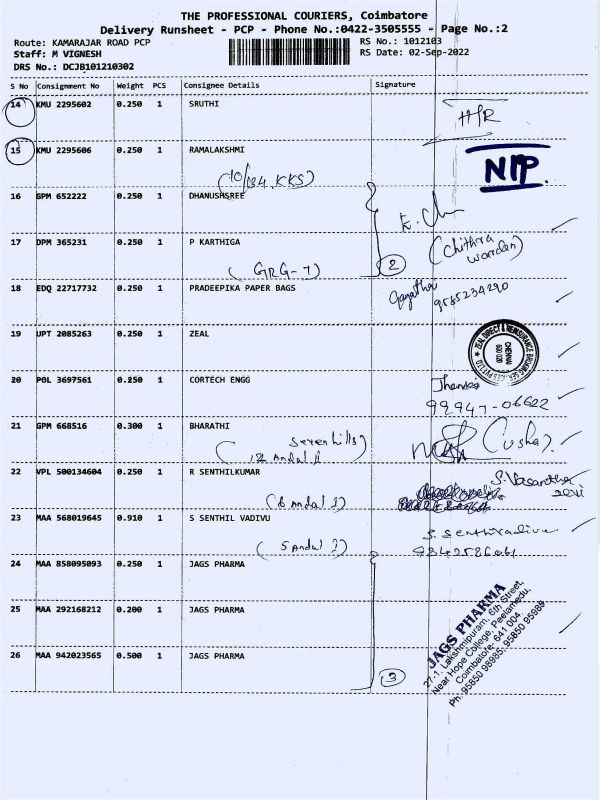 THE PROFESSIONAL COURIERS, Coimbatore
Delivery Runsheet - PCP - Phone No.:0422-3505555 - Page No.:2
Route: KAMARAJAR ROAD PCP
RS No.: 1012103
Staff: M VIGNESH
RS Date: 02-Sep-2022
DRS No.: DCJB101210302
S No Consignment No Weight PCS Consignee Details Signature
14 KMU 2295602 0.250 1 SRUTHI
15 KMU 2295606 0.250 1 RAMALAKSHMI
NIP
(10/134, KKS)
16 GPM 652222 0.250 1 DHANUSHSREE
17 DPM 365231 0.250 1 P KARTHIGA
(Chithra
warden)
(GRG-7)
2
18 EDQ 22717732 0.250 1 PRADEEPIKA PAPER BAGS
9585234290
19 UPT 2085263 0.250 1 ZEAL
CHENNAI
600 020
20 POL 3697561 0.250 1 CORTECH ENGG
99947-06622
21 GPM 668516 0.300 1 BHARATHI
(Usha)
22 VPL 500134604 0.250 1 R SENTHILKUMAR
S. Vasantha
devi
23 MAA 568019645 0.910 1 S SENTHIL VADIVU
S. Senthivadivu
24 MAA 858095093 0.250 1 JAGS PHARMA
25 MAA 292168212 0.200 1 JAGS PHARMA
26 MAA 942023565 0.500 1 JAGS PHARMA
3
JAGS PHARMA
27-1, Lakshmipuram, 6th Street,
Near Hope College, Peelamedu,
Coimbatore- 641 004.
Ph: 95850 98985, 95850 95985